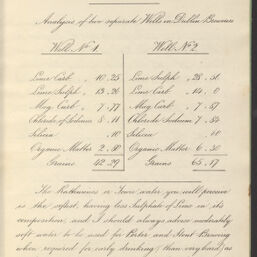 Analysis of two separate Wells in Dublin Breweries
Well No 1 Well No 2
Lime Carb . 10.25 Lime Sulph . 28.50
Lime Sulph . 13.26 Lime Carb . 14.0
Mag. Carb . 7.77 Mag. Carb . 7.57
Chloride of Sodium 8.11 Chloride Sodium 7.84
Silica .10 Silica .10
Organic Matter 2.80 Organic Matter 6.50
Grains 42.29 Grains 65.17
The Rathmines or Town water you will perceive
is the softest, having less Sulphate of Lime in its
composition, and I should always advise moderately
soft water to be used for Porter and Stout Brewing
when required for early drinking than very hard, as